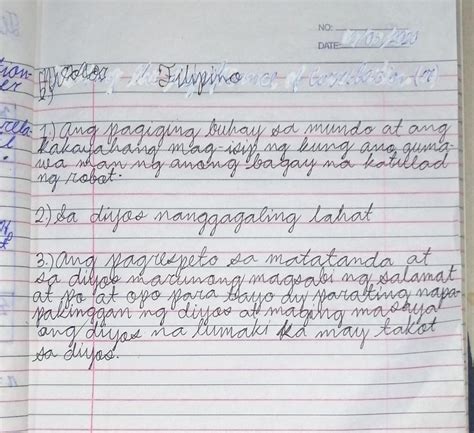 NO:
DATE:
Filipino
1.) Ang pagiging buhay sa mundo at ang
kakayahang mag-isip ng kung ano guma-
wa man ng anong bagay na katulad
ng robot.
2.) Sa diyos nanggagaling lahat
3.) Ang pagrespeto sa matatanda at
sa diyos marunong magsabi ng salamat
at po at opo para sayo ay parating napa-
pakinggan ng diyos at maging masaya
ang diyos na lumaki ka may takot
sa diyos.